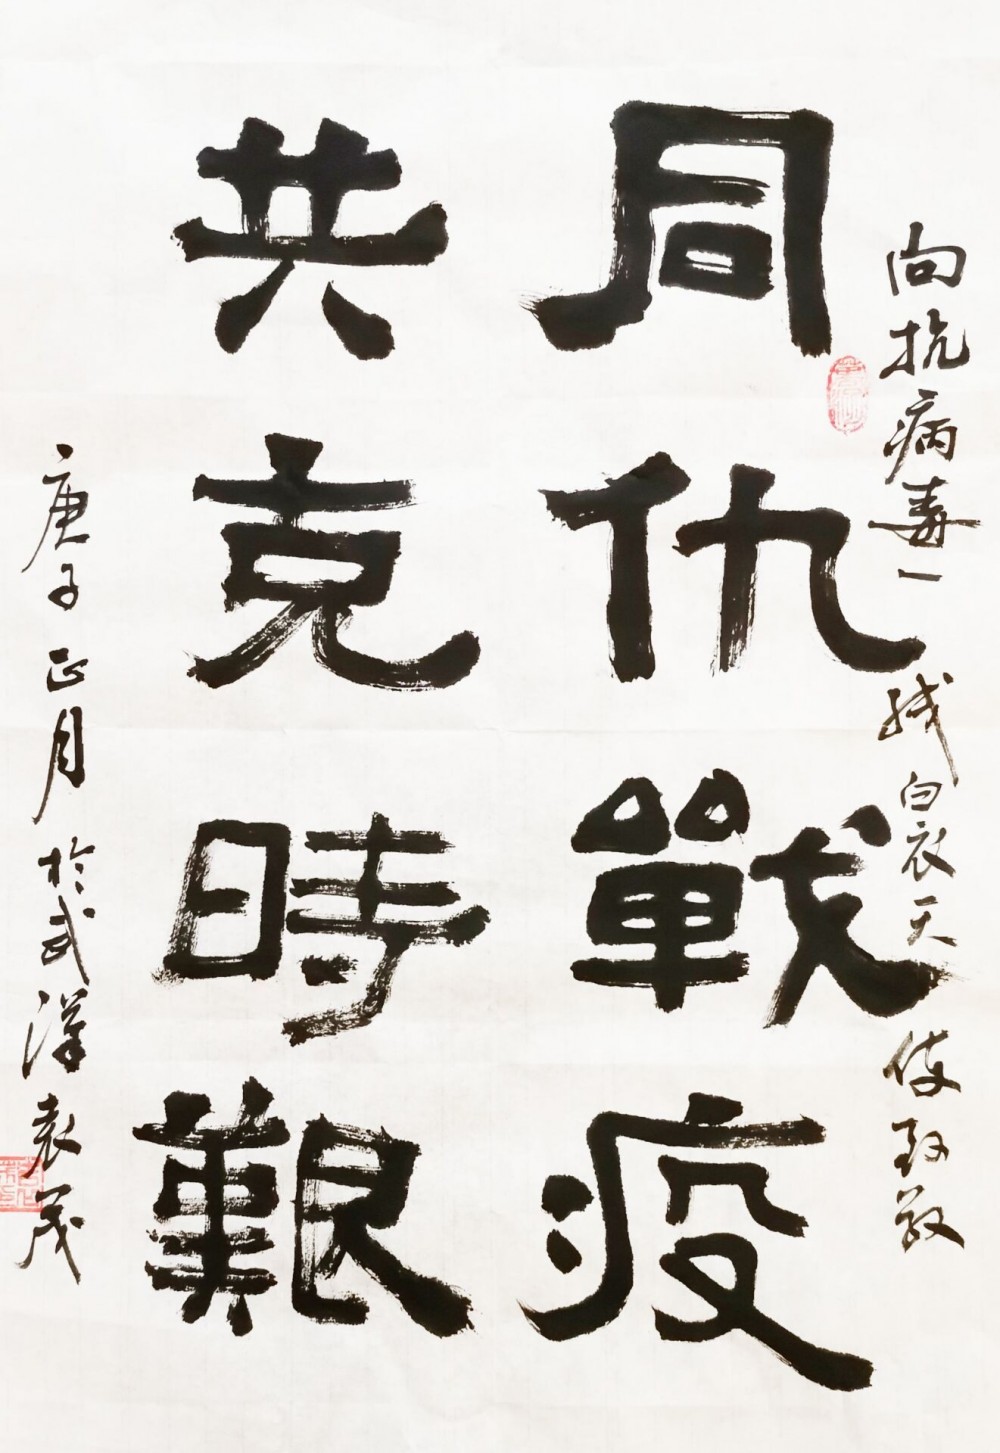 向抗病毒一线白衣天使致敬
同仇戰疫
共克時艱
庚子正月於武漢袁茂